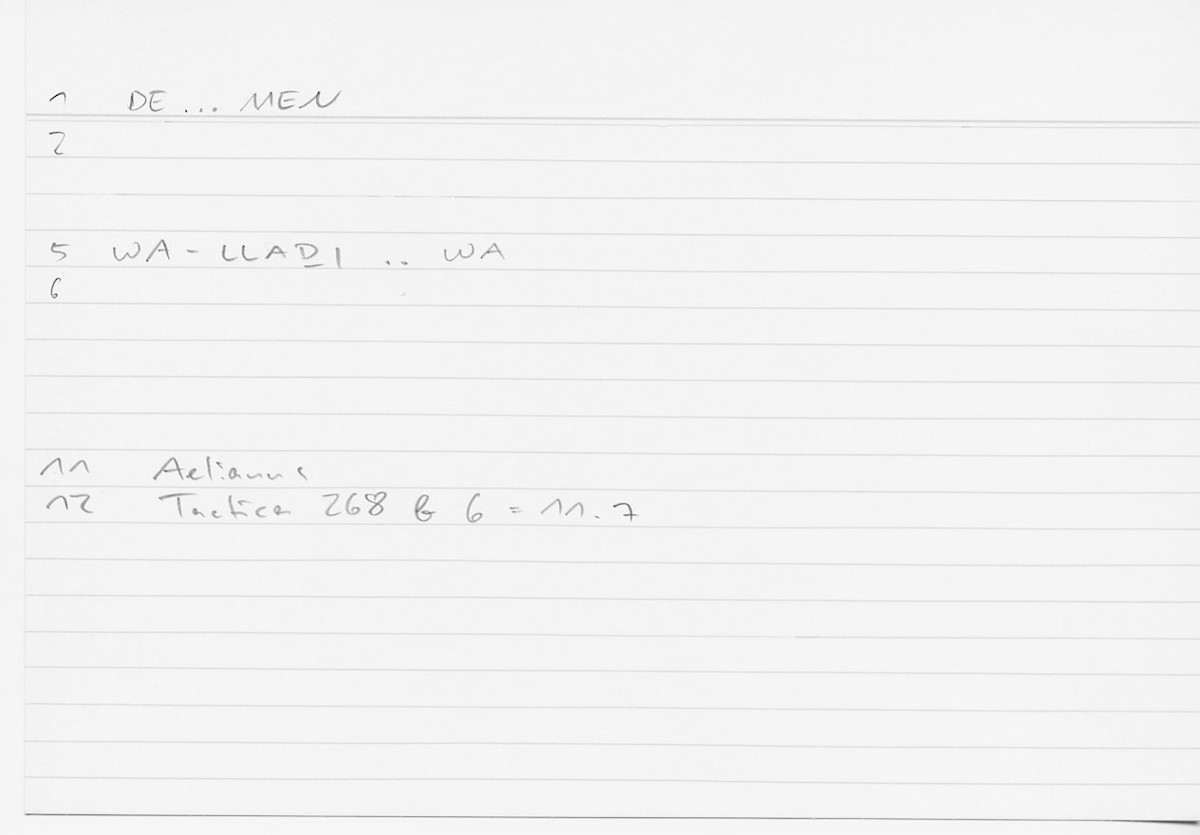 1 DE ... MEN
2
5 WA - LLAḎI .. WA
6
11 Aelianus
12 Tactica 268 b 6 = 11.7